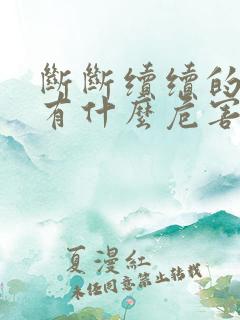 斷斷續續的
有什麼危害
夏漫紅
未经同意禁止转载